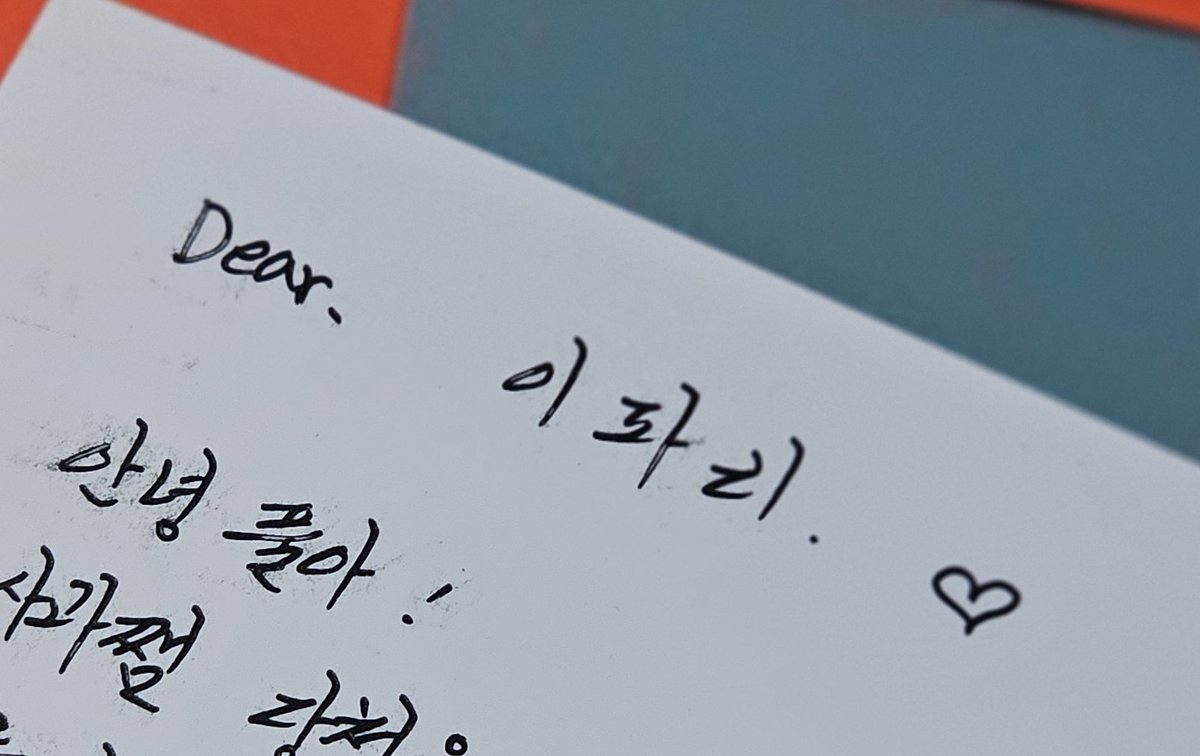 Dear.
이 파 리. ♡
안녕 풀아!
사과쨈